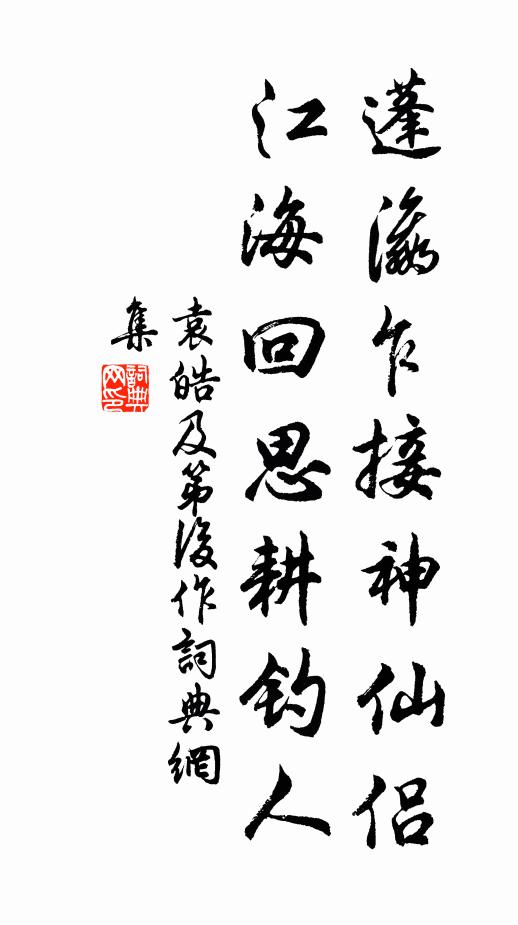 蓬瀛乍接神仙侶
江海回思耕釣人
袁皓及第後作詞典網
集
詞典
网印